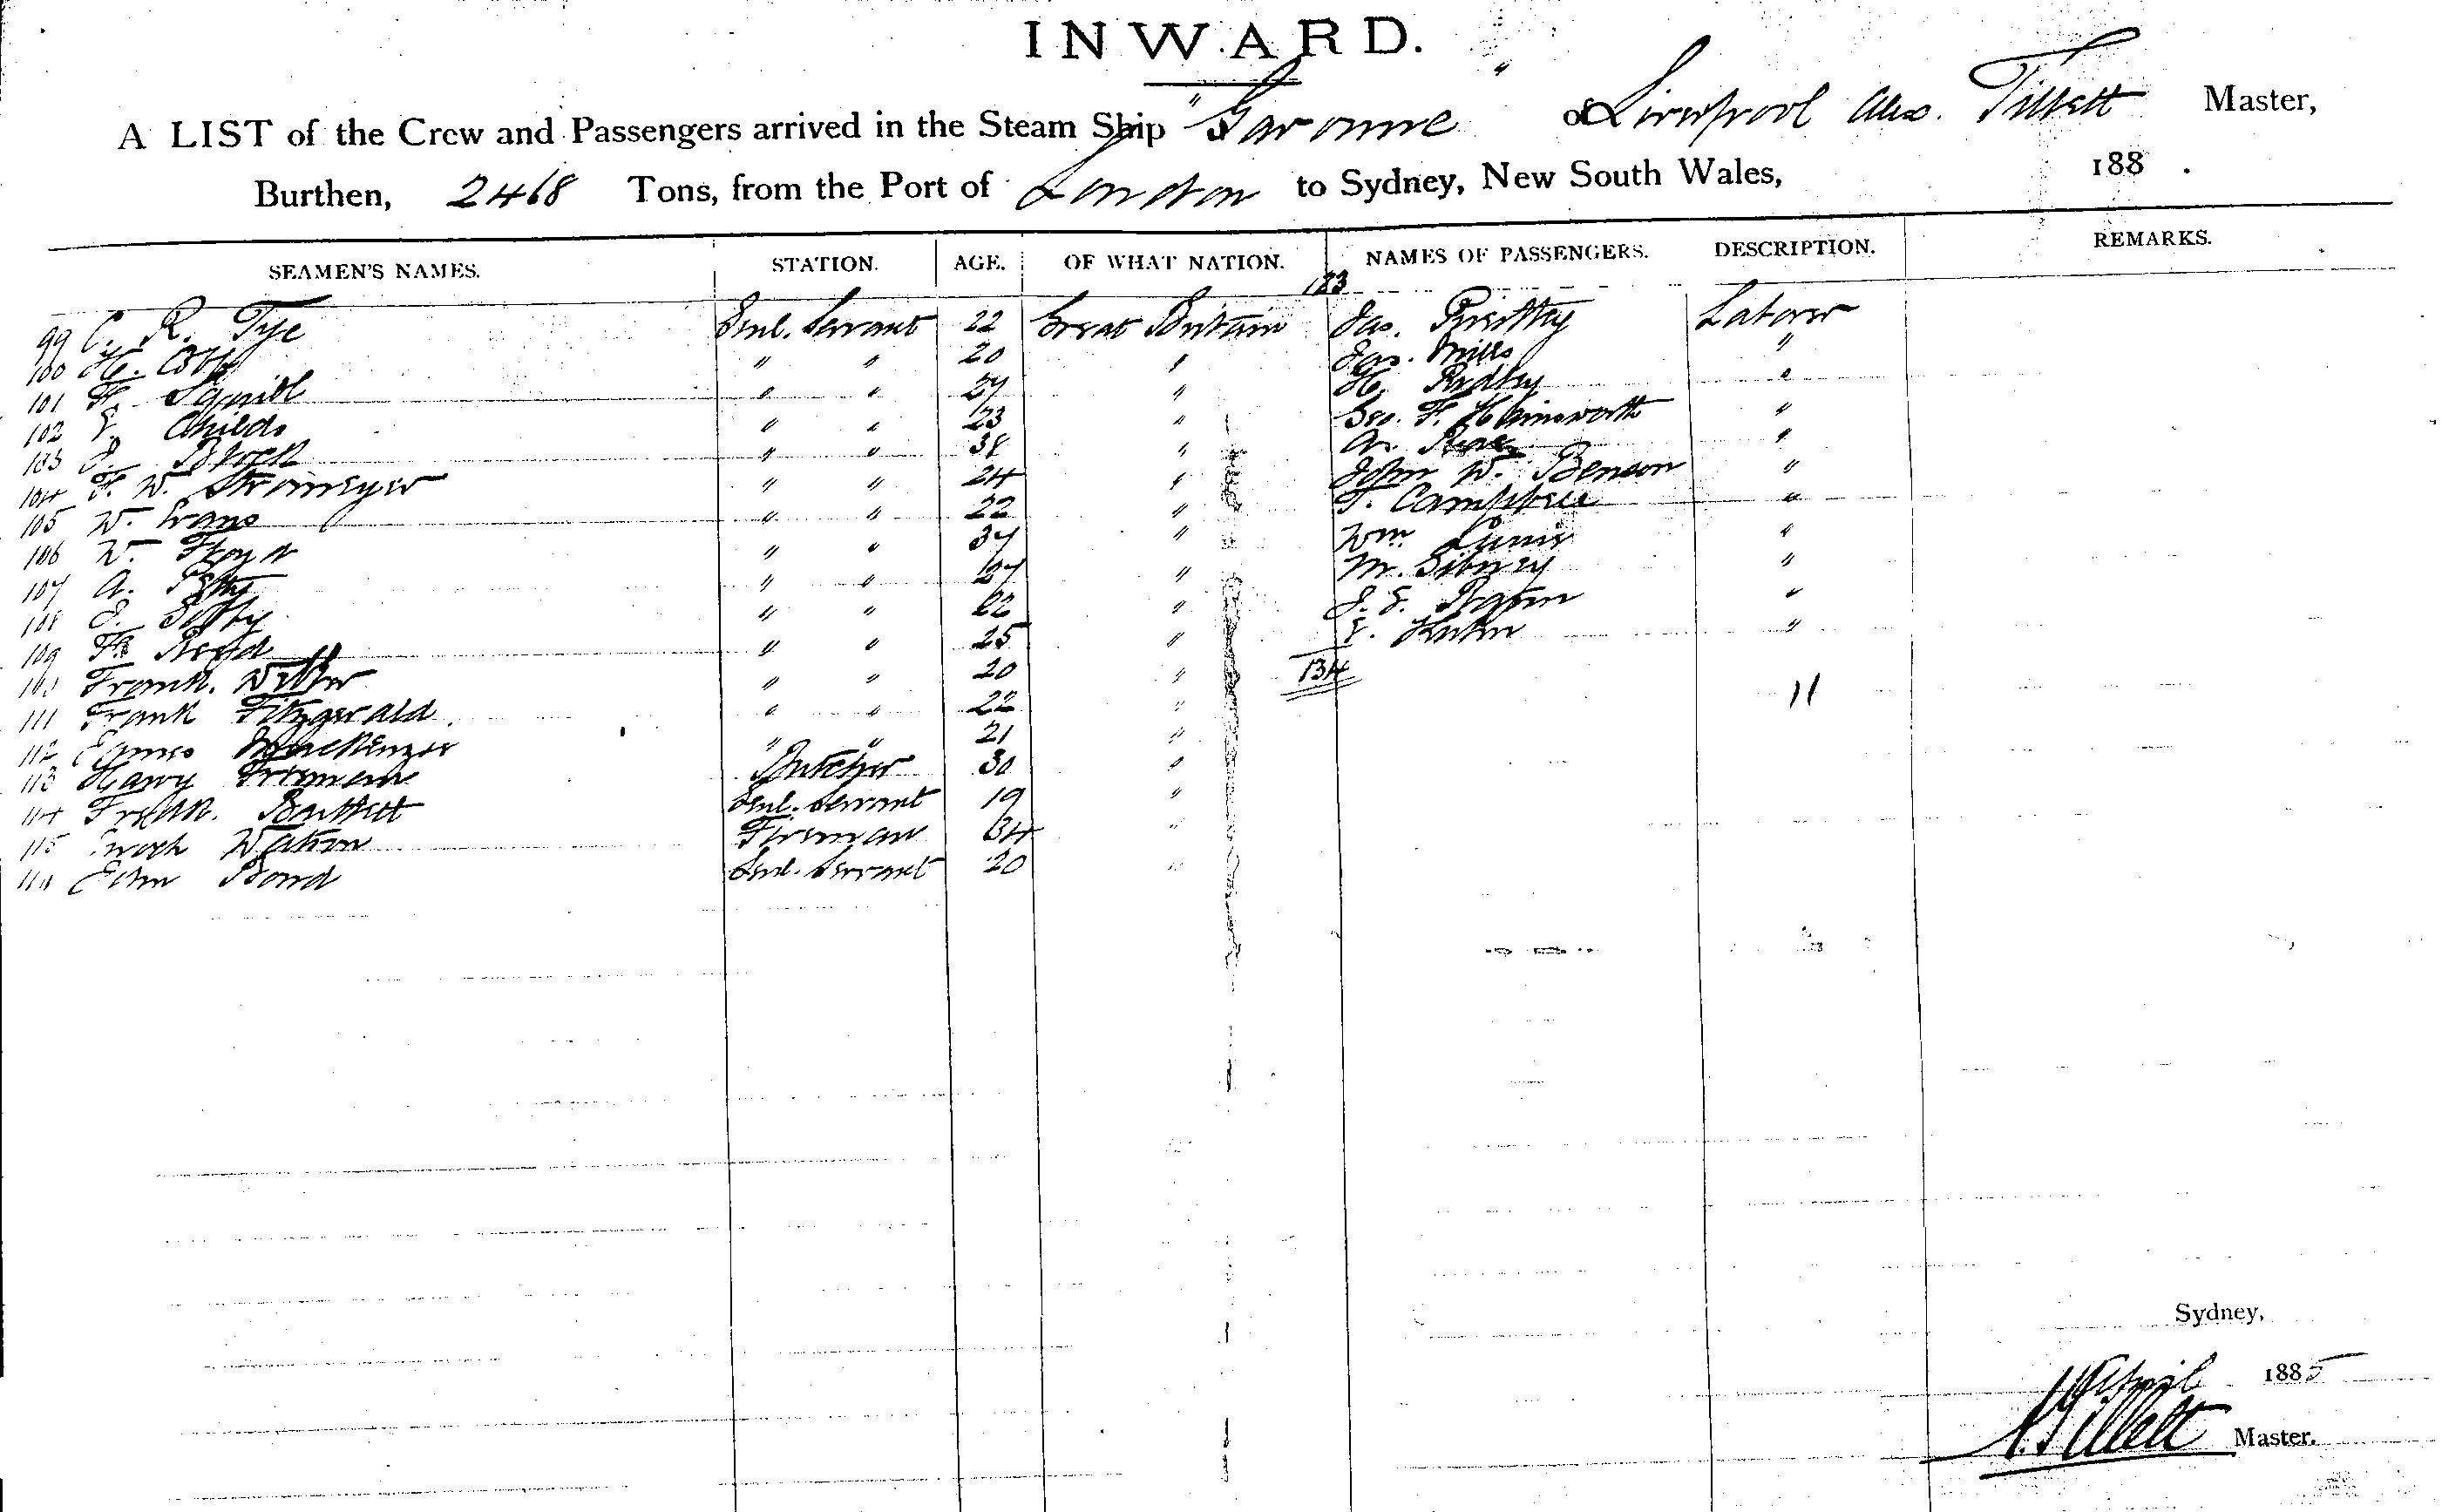 INWARD.
A LIST of the Crew and Passengers arrived in the Steam Ship "Garonne" of Liverpool Alex. Tillett Master,
Burthen, 2468 Tons, from the Port of London to Sydney, New South Wales, 188 .
SEAMEN'S NAMES. STATION. AGE. OF WHAT NATION. NAMES OF PASSENGERS. DESCRIPTION. REMARKS.
123
99 C. R. Tye Genl. Servant 22 Great Britain Jas. Priestley Laborer
100 H. " " 20 " Mills "
101 F. Squibb " " 27 " H. Ridley "
102 E. Childs " " 23 " Geo. F. Hainsworth "
103 " " 38 " A. "
104 F. W. Stromeyer " " 24 " John W. Benson "
105 W. Evans " " 22 " T. Campbell "
106 W. " " 37 " Wm. "
107 A. " " 27 " M. Gibney "
108 " " 22 " J. E. "
109 " " 25 " E. "
Frank. " " 20 " 134
111 Frank Fitzgerald " " 22 " 11
112 James Mackenzie " " 21 "
113 Harry Butcher 30 "
114 Fredk. Bartlett Genl. Servant 19 "
115 Enoch Watson Fireman 34 "
John Bond Genl. Servant 20 "
Sydney,
April 1885
A. Tillett Master.